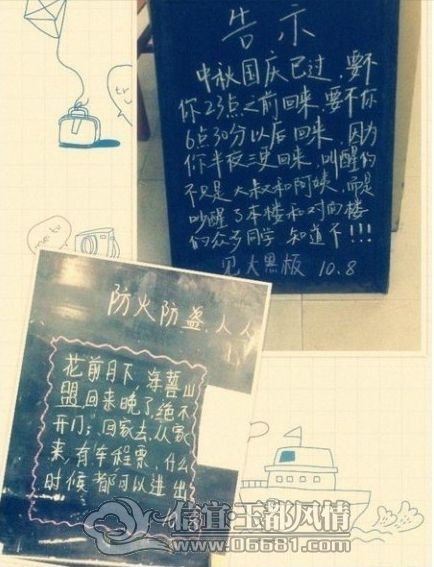 告示
中秋国庆已过，要不
你23点之前回来，要不你
6点30分以后回来，因为
你半夜三更回来，叫醒的
不只是大叔和阿姨，而是
吵醒了本楼和对面楼
的众多同学 知道不!!!
见大黑板 10.8
防火防盗,人人
花前月下，海誓山
盟回来晚了，绝不
开门；回家去，从家
来，有车程票，什么
时候都可以进出
信宜玉都风情
www.06681.com